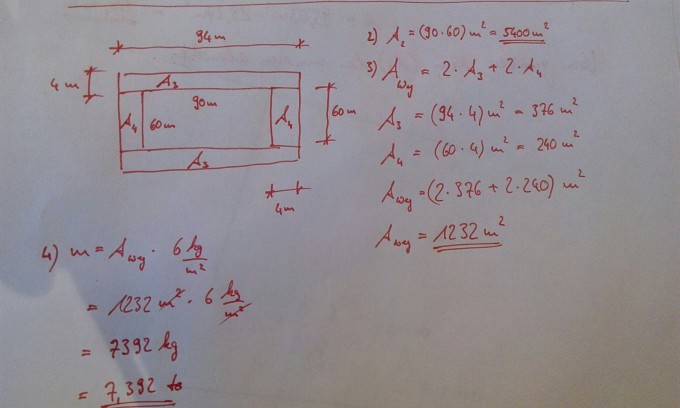 94m
4m
A3
90m
A4
60m
A4
60m
A3
4m
2) A2 = (90·60) m² = 5400 m²
3) AWeg = 2·A3 + 2·A4
A3 = (94·4) m² = 376 m²
A4 = (60·4) m² = 240 m²
AWeg = (2·376 + 2·240) m²
AWeg = 1232 m²
4) m = AWeg · 6 kg/m²
= 1232 m² · 6 kg/m²
= 7392 kg
= 7,392 to